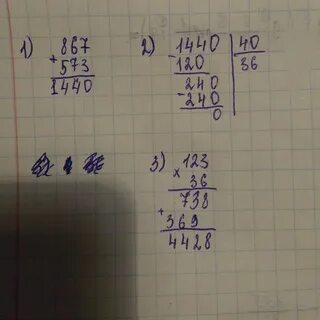 1) 867
+ 573
1440
2) 1440 | 40
- 120 | 36
240
- 240
0
3) 123
× 36
738
+ 369
4428